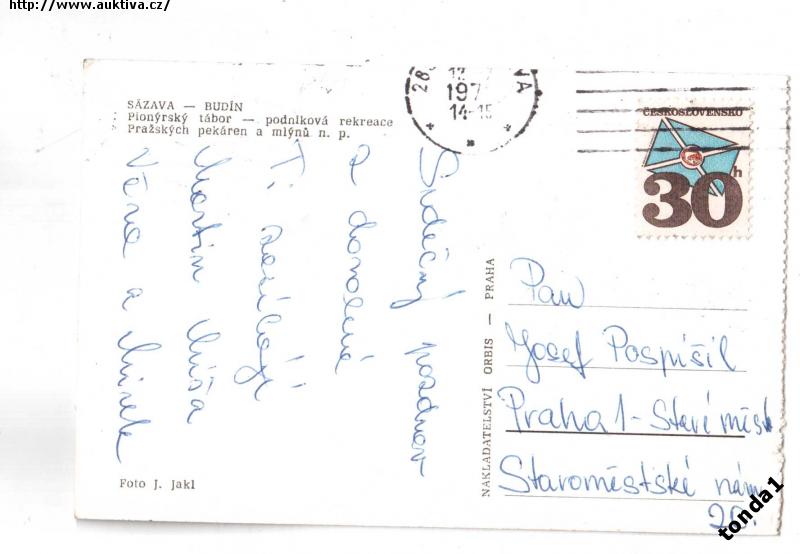 http://www.auktiva.cz/
SÁZAVA — BUDÍN
Pionýrský tábor — podniková rekreace
Pražských pekáren a mlýnů n. p.
Srdečný pozdrav
z dovolené
Ti zasílají
Martin Míša
Věra a Mirek
Foto J. Jakl
NAKLADATELSTVÍ ORBIS — PRAHA
28
NA
197
14-15
ČESKOSLOVENSKO
30h
Pan
Josef Pospíšil
Praha 1 - Staré měst
Staroměstské nám
20.
tonda1